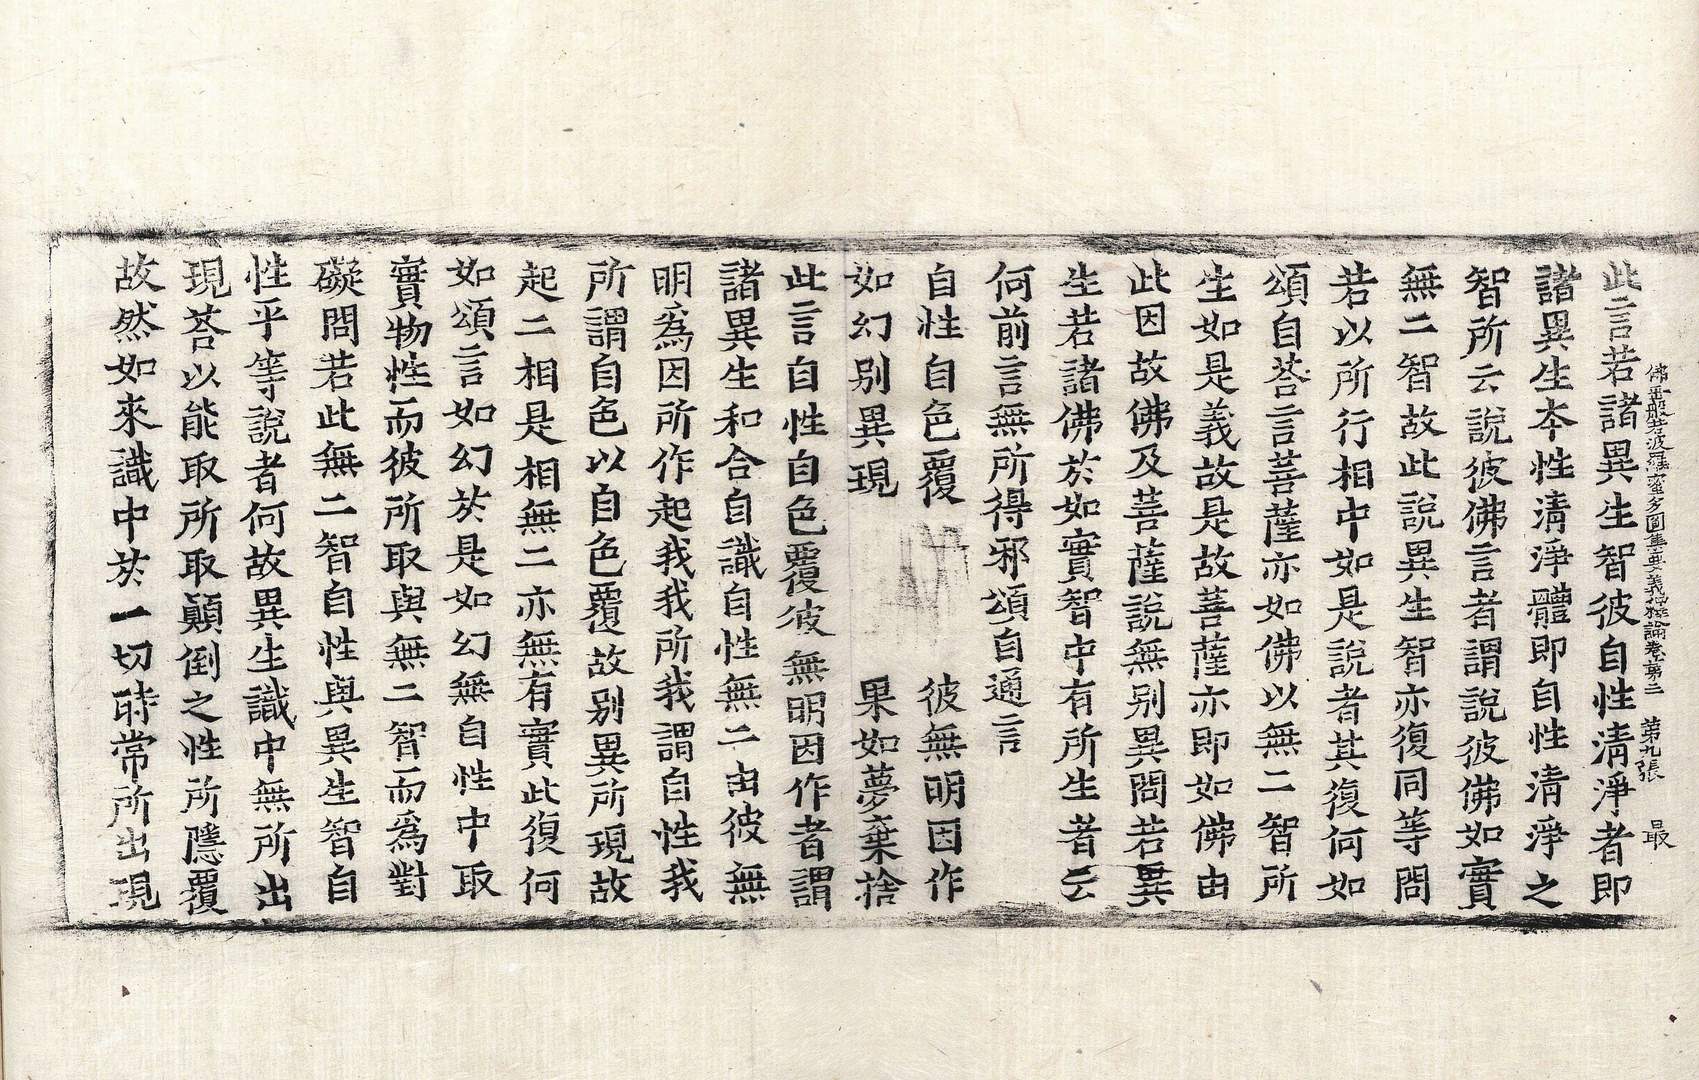 佛母般若波羅蜜多圓集要義釋論卷第三 第九張 最
此言若諸異生智彼自性清淨者即
諸異生本性清淨體即自性清淨之
智所云說彼佛言者謂說彼佛如實
無二智故此說異生智亦復同等問
若以所行相中如是說者其復何如
頌自荅言菩薩亦如佛以無二智所
生如是義故是故菩薩亦即如佛由
此因故佛及菩薩說無別異問若異
生若諸佛於如實智中有所生者云
何前言無所得邪頌自通言
自性自色覆 彼無明因作
如幻別異現 果如夢棄捨
此言自性自色覆彼無明因作者謂
諸異生和合自識自性無二由彼無
明為因所作起我我所我謂自性我
所謂自色以自色覆故別異所現故
起二相是相無二亦無有實此復何
如頌言如幻於是如幻無自性中取
實物性而彼所取與無二智而為對
礙問若此無二智自性與異生智自
性平等說者何故異生識中無所出
現荅以能取所取顛倒之性所隱覆
故然如來識中於一切時常所出現